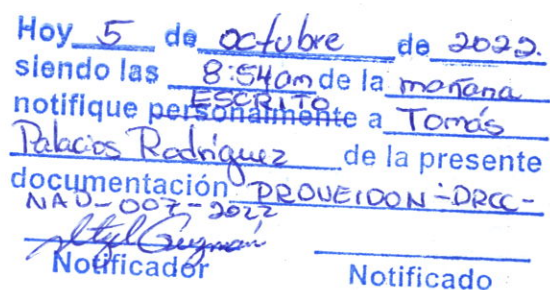 Hoy 5 de octubre de 2022.
siendo las 8:54am de la mañana
ESCRITO
notifique personalmente a Tomás
Palacios Rodríguez de la presente
documentación PROVEIDON-DRCC-
NAU-007-2022
Notificador Notificado